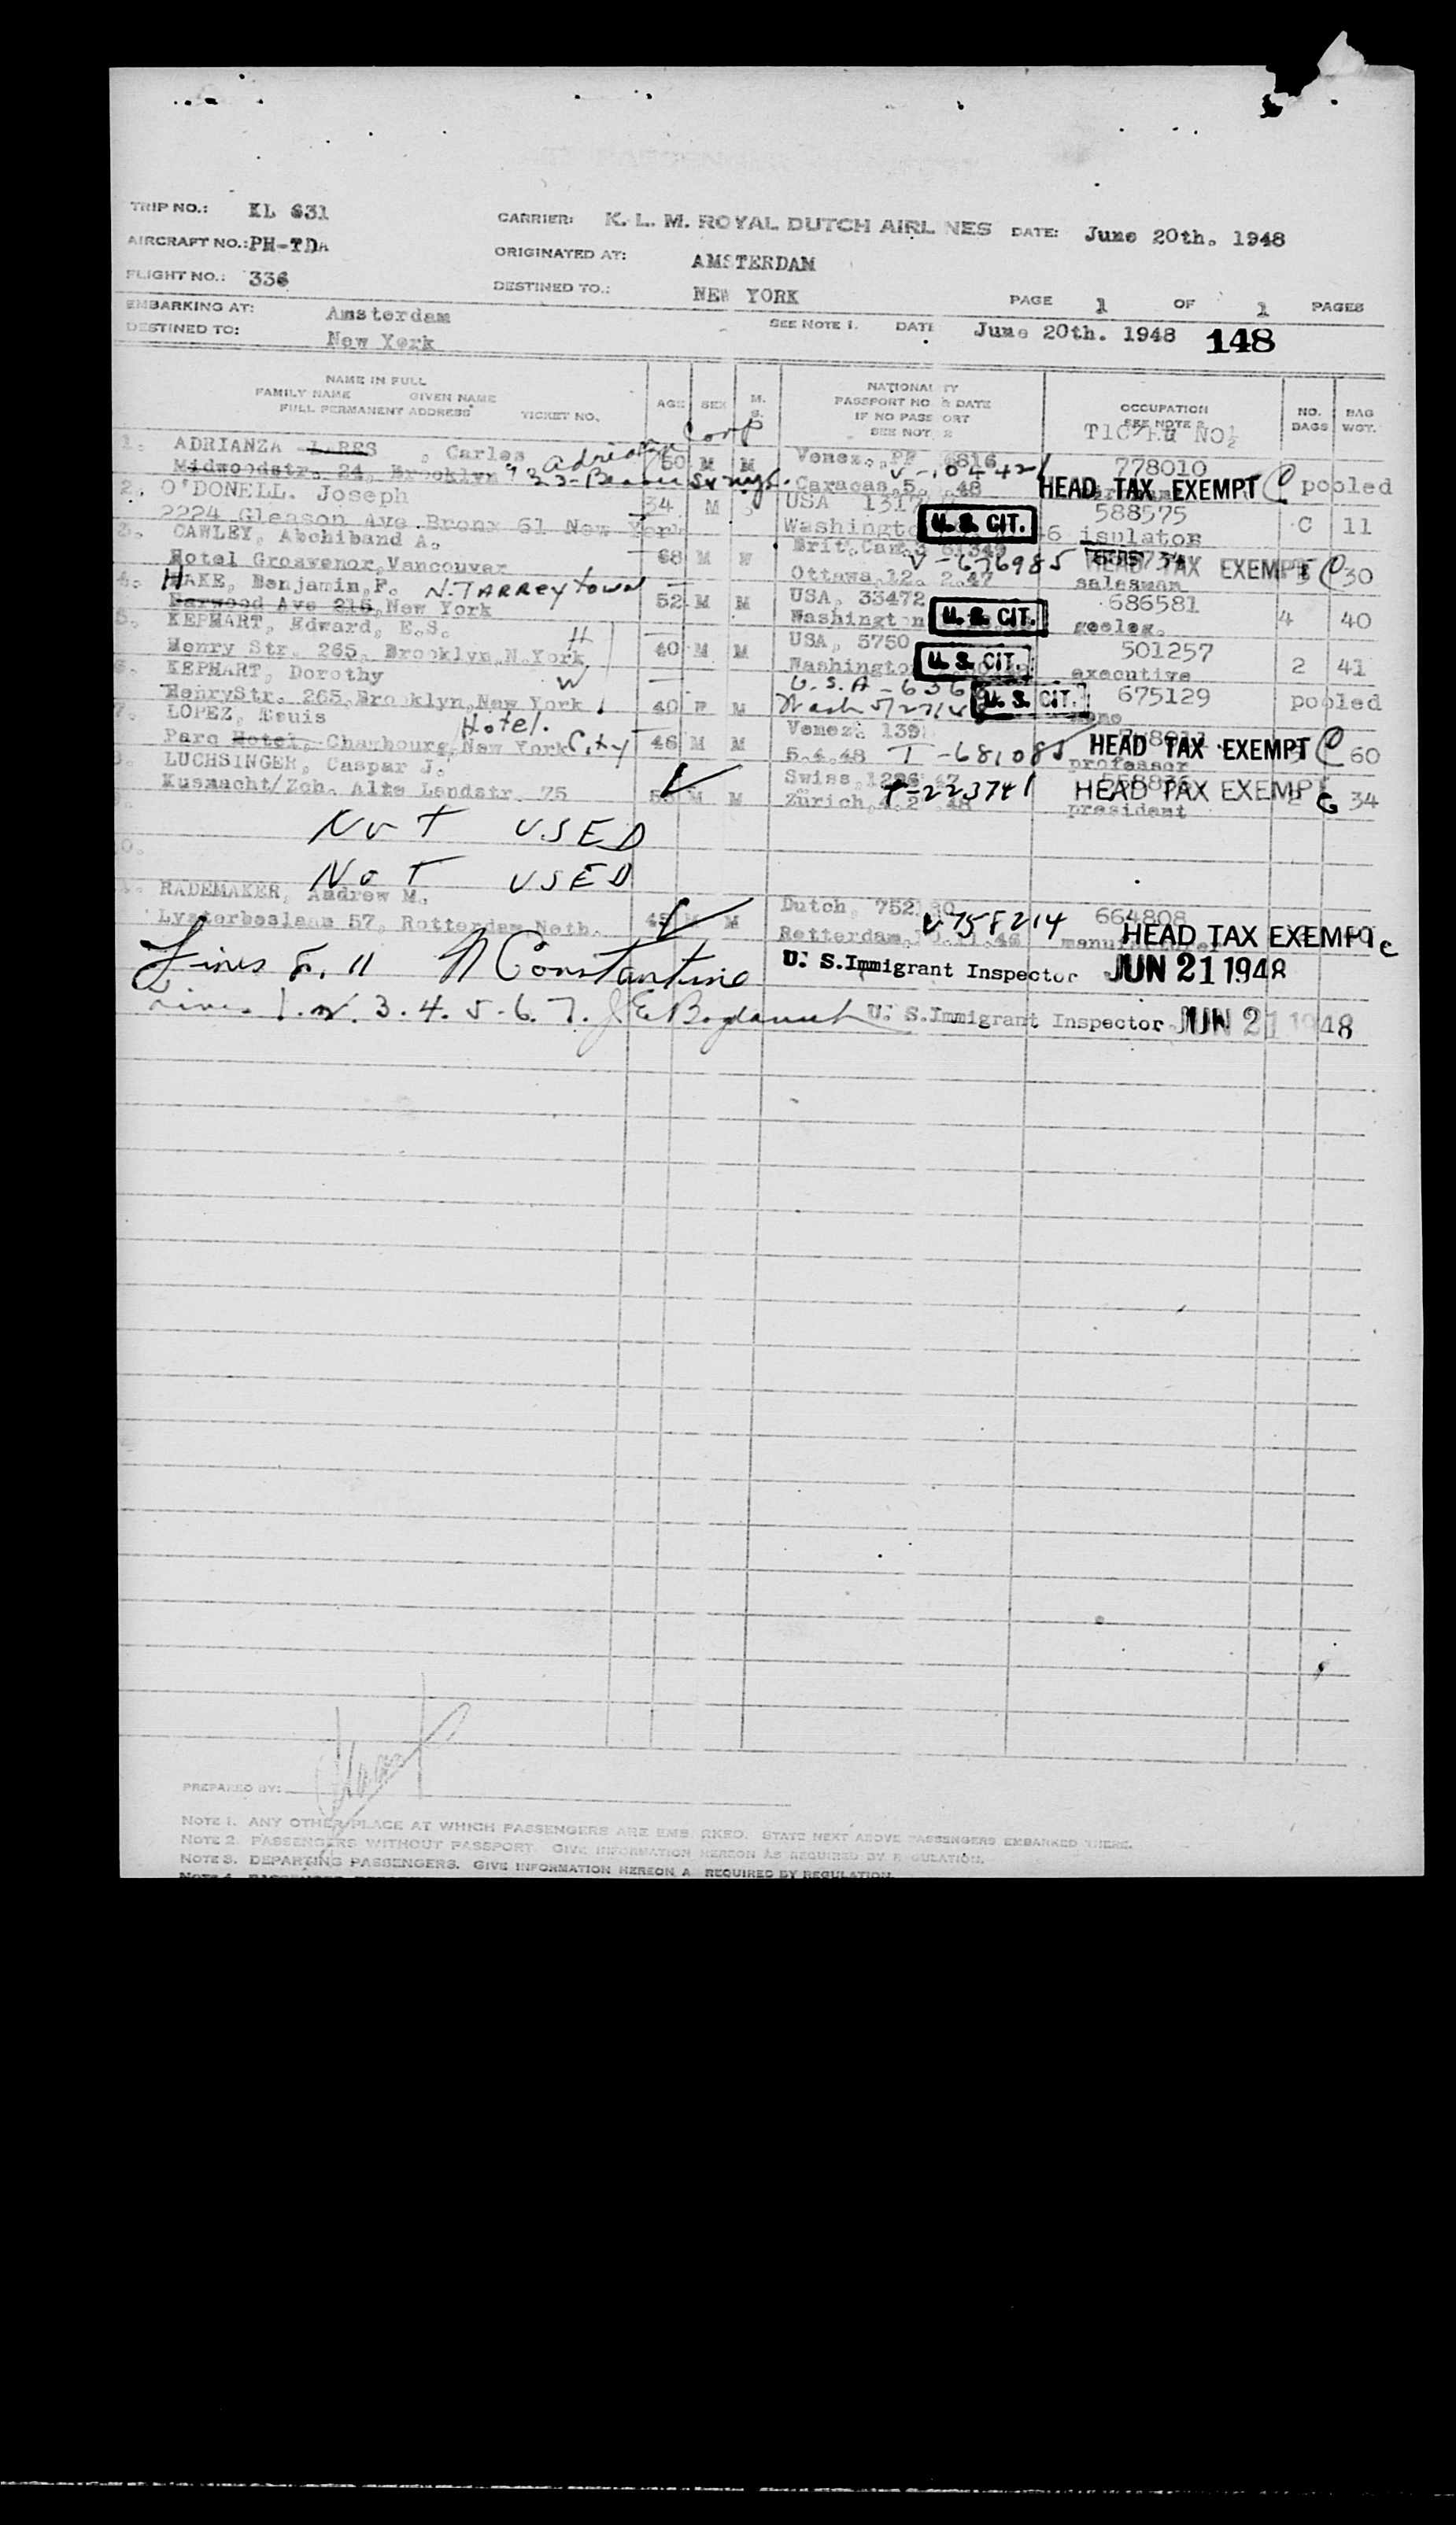 TRIP NO.: KL 631
CARRIER: K. L. M. ROYAL DUTCH AIRL NES DATE: June 20th. 1948
AIRCRAFT NO.: PH-TDA
ORIGINATED AT: AMSTERDAM
FLIGHT NO.: 336
DESTINED TO.: NEW YORK
PAGE 1 OF 1 PAGES
EMBARKING AT: Amsterdam
SEE NOTE 1. DATE June 20th. 1948 148
DESTINED TO: New York
NAME IN FULL
FAMILY NAME GIVEN NAME
FULL PERMANENT ADDRESS TICKET NO.
AGE SEX M. S.
NATIONAL TY
PASSPORT NO. & DATE
IF NO PASS ORT
SEE NOT 2
OCCUPATION
SEE NOTE 2
TICKET NO
NO. BAGS
BAG WGT.
1. ADRIANZA LARES , Carles Adrianza Corp
50 M M Venez., PP 6816 778010
Midwoodstr. 24, Brooklyn 23-Beaver St nyc.
Caracas, 5. 48 HEAD TAX EXEMPT C pooled
2. O'DONELL. Joseph 34 M S USA 1317 588575
2224 Gleason Ave Bronx 61 New York Washingto U. S. CIT. 6 isolator C 11
3. CAWLEY, Abchiband A. 68 M W Brit. Can. 3 61349
Hotel Grosvenor, Vancouver V-676985 HEAD TAX EXEMPT C 30
Ottawa, 12. 2.47 salesman
4. HAKE, Benjamin, F. N. TARREYTOWN 52 M M USA, 33472 686581
Harwood Ave 216, New York Washington U. S. CIT. geolog. 4 40
5. KEPHART, Edward, E.S. H 40 M M USA, 5750 501257
Henry Str. 265, Brooklyn, N.York Washington U. S. CIT. executive 2 41
6. KEPHART, Dorothy W U.S.A - 636 675129
HenryStr. 265, Brooklyn, New York 40 F M Wash U. S. CIT. none pooled
7. LOPEZ, Hotel. 46 M M Venez. 139
Parc Hotel, Chambourg, New York City 5.4.48 T-681085 HEAD TAX EXEMPT C 60
professor
8. LUCHSINGER, Caspar J. Swiss,
Kusnacht/Zch. Alte Landstr. 75 M M Zürich, T-223741 HEAD TAX EXEMPT G 34
president
9.
NOT USED
10.
NOT USED
11. RADEMAKER, Andrew M. Dutch, 664808
Lysterboslaan 57, Rotterdam Neth. 45 M M Rotterdam, V758214 HEAD TAX EXEMPT c
Lines 8, 11 N Constantine U. S. Immigrant Inspector JUN 21 1948
Lines 1. 2. 3. 4. 5. 6. 7. U. S. Immigrant Inspector JUN 21 1948
PREPARED BY:
NOTE 1. ANY OTHER PLACE AT WHICH PASSENGERS ARE EMB RKED. STATE NEXT ABOVE PASSENGERS EMBARKED THERE.
NOTE 2. PASSENGERS WITHOUT PASSPORT GIVE INFORMATION HEREON AS REQUIRED BY R GULATION.
NOTE 3. DEPARTING PASSENGERS. GIVE INFORMATION HEREON A REQUIRED BY REGULATION.